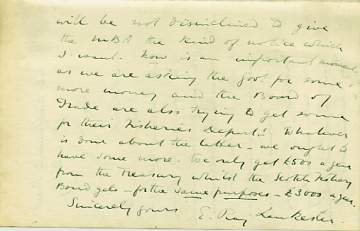 will be not disinclined to give
the MBA the kind of notice which
I want. Now is an important moment
as we are asking the Govt for some
more money and the Board of
Trade are also trying to get some
for their Fisheries Depart! Whatever
is done about the letter - we ought to
have some more. We only get £500 a year
from the Treasury whilst the Scotch Fishery
Board gets - for the same purposes - £3000 a year.
Sincerely yours E. Ray Lankester.